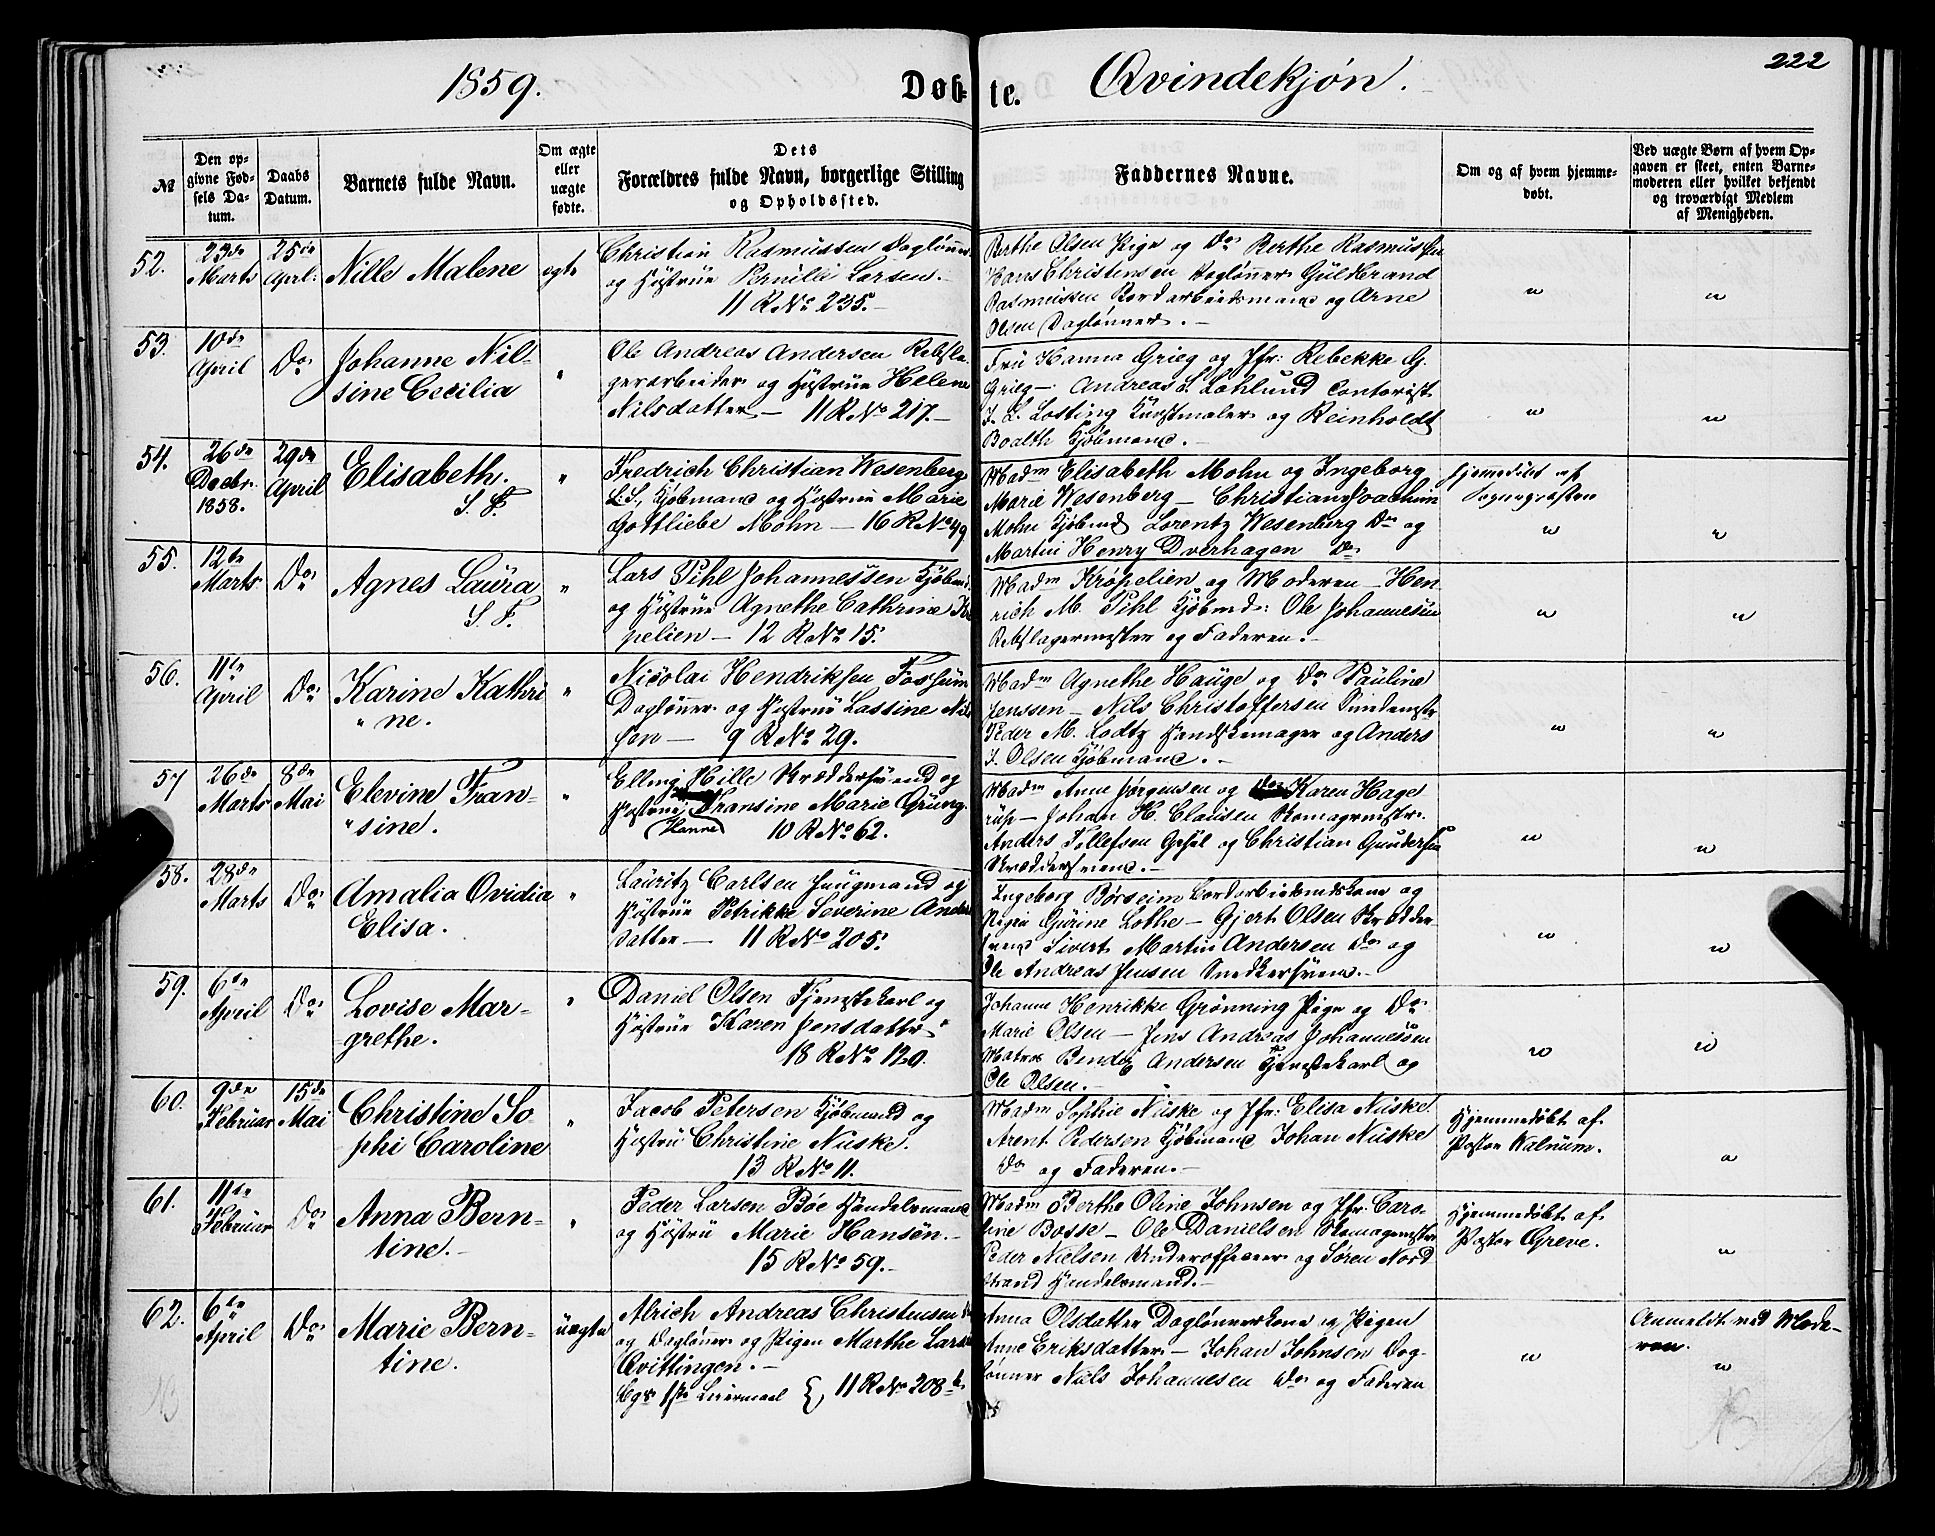 1859.
Døb-
te.
Qvindekjøn.
222
№
Den op-
givne Fød-
sels Da-
tum.
Daabs
Datum.
Barnets fulde Navn.
Om ægte
eller
uægte
fødte.
Dets
Forældres fulde Navn, borgerlige Stilling
og Opholdssted.
Faddernes Navne.
Om og af hvem hjemme-
døbt.
Ved uægte Børn af hvem Op-
gaven er skeet, enten Barne-
moderen eller hvilket bekjendt
og troværdigt Medlem
af Menigheden.
52.
23de
Marts
25de
April.
Nille Malene
egte
Christian Rasmussen Daglønner
og Hustrue Pernille Larsen.
11 R No 235.
Berthe Olsen Pige og Do Berthe Rasmussen
Hans Christensen Daglønner Guldbrand
Rasmussen Bordarbeidsmand og Arne
Olsen Daglønner.
53.
10de
April
Do
Johanne Nil-
sine Cecilia
"
Ole Andreas Andersen Rebsla-
gerarbeider og Hustrue Helene
Nilsdatter - 11 R No 217.
Fru Hanna Grieg og Jfr: Rebekke G.
Grieg - Andreas L. Lohlund Contorist
J. L. Losting Kunstmaler og Reinholdt
Boalth Kjøbmand.
54.
26de
Decbr.
1858.
29de
April
Elisabeth.
S. F.
"
Fredrich Christian Wesenberg
L. S., Kjøbmand og Hustrue Marie
Gottliebe Mohn - 16 R No 49
Madm Elisabeth Mohn og Ingeborg
Marie Wesenberg - Christian Joachim
Mohn Kjøbmd Lorentz Wesenberg Do og
Martin Henry Overhagen Do
Hjemedøbt af
Sognepræsten
55.
12te
Marts
Do
Agnes Laura
S. F.
"
Lars Pihl Johannessen Kjøbmd
og Hustrue Agnethe Cathrine Krø
pelien - 12 R No 15.
Madm Krøpelien og Moderen - Hen
rich M. Pihl Kjøbmd: Ole Johannesen
Rebslagermester og Faderen.
56.
11te
April
Do
Karine Kathri
" ne.
"
Nicolai Hendriksen Fossum
Daglønner og Hustrue Lassine Nil
sen - 9 R No 29.
Madm Agnethe Hauge og Do Pauline
Jenssen - Nils Christoffersen
Peder M. Lodtz Handskemager og Anders
J. Olsen Kjøbmand.
57
26de
Marts
8de
Mai
Elevine Fran-
" sine.
"
Elling Hille Skræddersvend og
Hustrue Fransine Marie Grung.
Hanne
10 R No 62.
Madm Anne Jørgensen og Do Karen Hage
rup - Johan H. Clausen Skomagermstr.
Anders Tollefsen og Christian Gundersen
Skræddersvend.
58.
28de
Marts
Do
Amalia Ovidia
Elisa.
"
Lauritz Carlsen Jungmand og
Hustrue Petrikke Severine Anders
datter - 11 R No 205.
Ingeborg Børseim Bordarbeidsmdskone og
Pigen Gurine Lothe - Gjert Olsen Skrædder-
svend Sivert Martin Andersen Do og
Ole Andreas Jensen Snedkersvend.
59.
6te
April
Do
Lovise Mar-
grethe.
"
Daniel Olsen Tjenstekarl og
Hustrue Karen Jensdatter
18 R No 120.
Johanne Henrikke Grønning Pige og Do
Marie Olsen - Jens Andreas Johannessen
Matros Bendix Andersen Tjenstekarl og
Ole Olsen.
60.
9de
Februar
15de
Mai
Christine So
phi Caroline
"
Jacob Petersen Kjøbmand og
Hustru Christine Nuske.
13 R No 11.
Madm Sophie Nuske og Jfr: Elisa Nuske.
Arent Pedersen Kjøbmand Johan Nuske
Do og Faderen.
Hjemmedøbt af
Pastor Walnum.
61.
11te
Februar
Do
Anna Bern-
tine.
"
Peder Larsen Bøe Handelsmand
og Hustru Marie Hansen.
15 R No 59.
Madm Berthe Oline Johnsen og Jfr: Caro-
line Bosse - Ole Danielsen Skomagermstr
Peder Nielsen Underofficeer og Søren Nord
strand Handelsmand.
Hjemmedøbt af
Pastor Greve.
62.
6te
April
Do
Marie Bern-
tine.
uægte
Alrich Andreas Christensen
og Daglønner og Pigen Marthe Larsd
Qvittingen.
Bgs 1ste Leiermaal } 11 R No 208 b.
Anna Olsdatter Daglønnerskone og Pigen
Anne Eriksdatter - Johan Johnsen Dag-
lønner Niels Johannesen Do og Faderen
Anmeldt ved Mode-
ren.